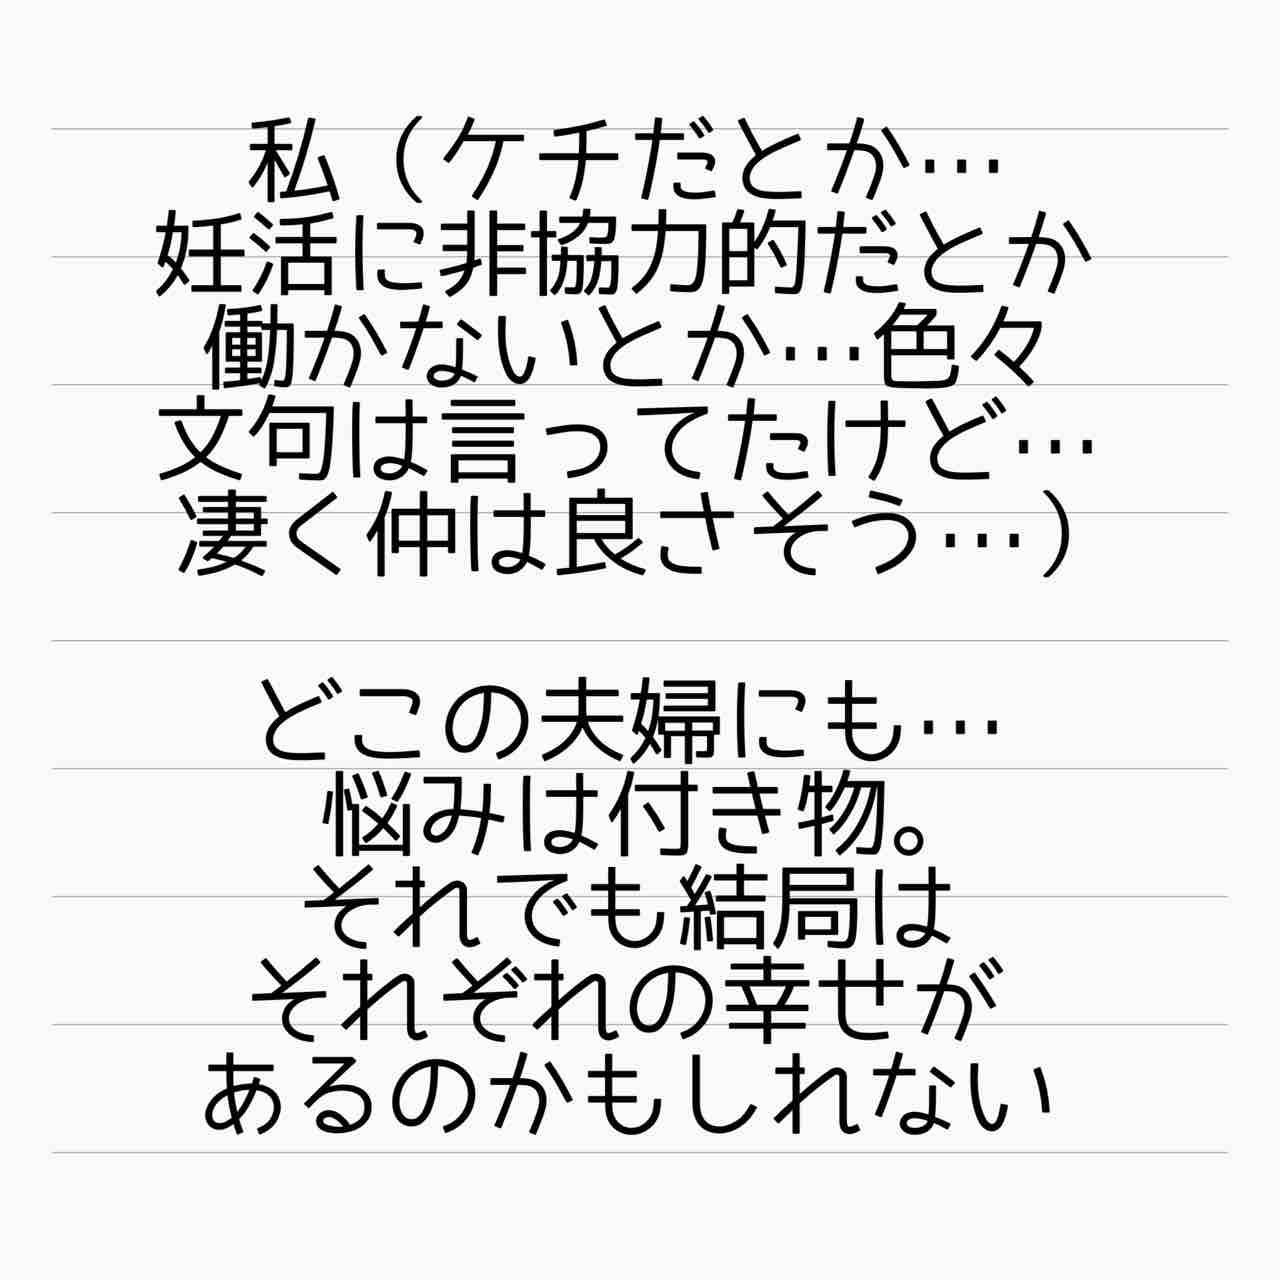 私（ケチだとか…
妊活に非協力的だとか
働かないとか…色々
文句は言ってたけど…
凄く仲は良さそう…）
どこの夫婦にも…
悩みは付き物。
それでも結局は
それぞれの幸せが
あるのかもしれない